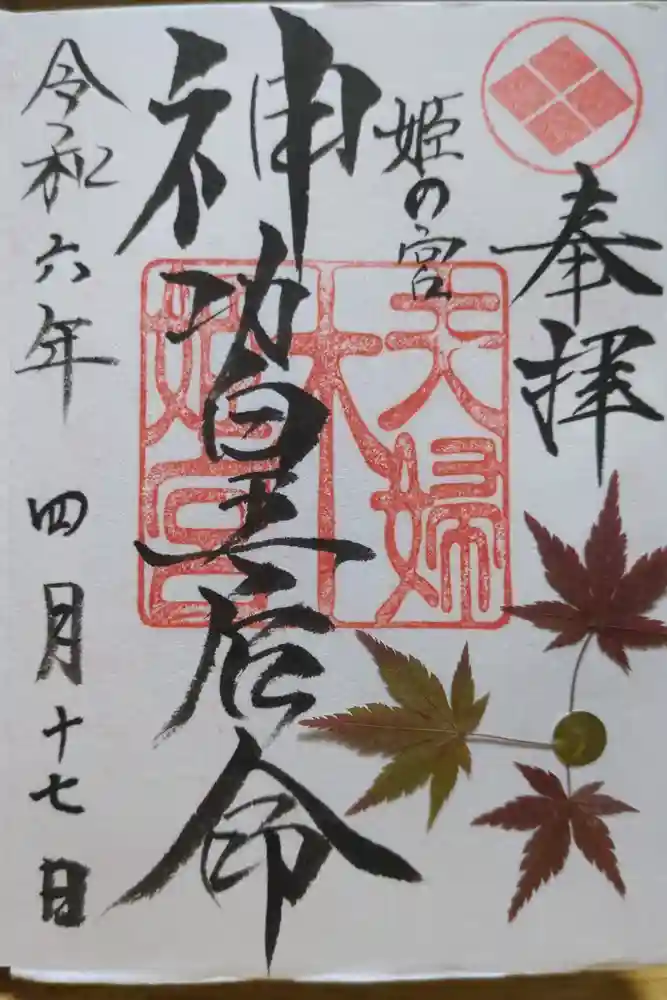 奉拝
姫の宮
神功皇后命
令和六年 四月十七日
夫婦
大
姫宮